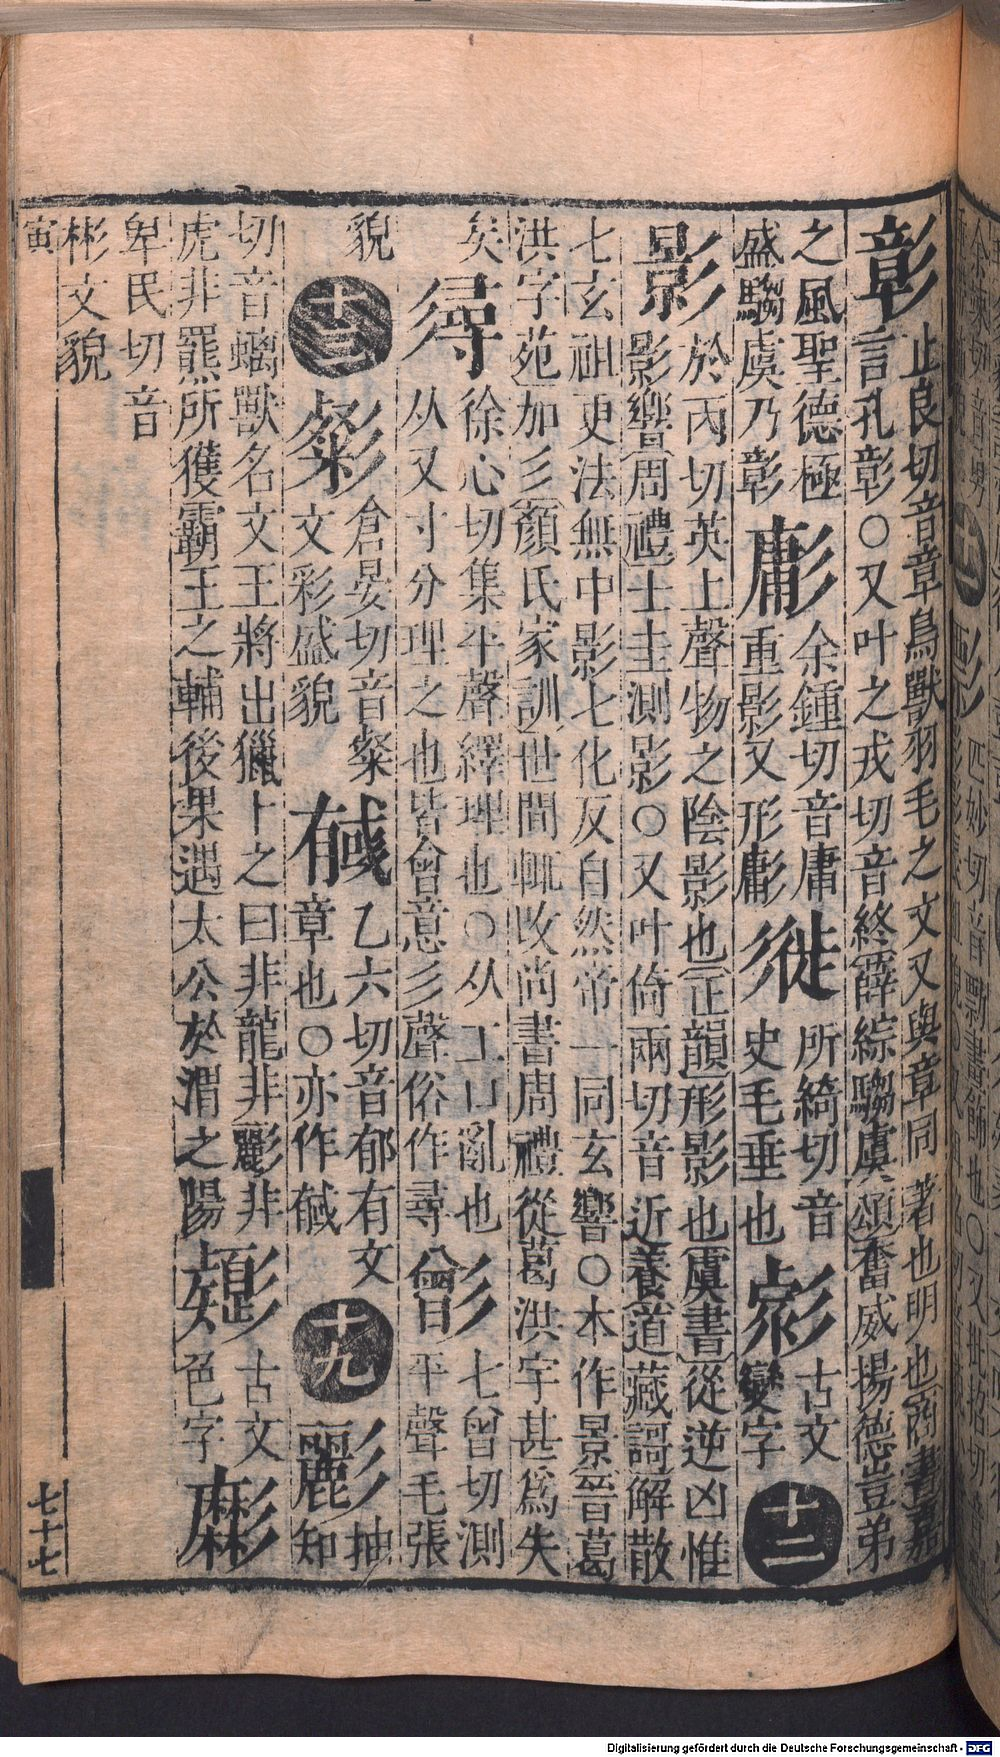 彰 止良切音章鳥獸羽毛之文又與章同著也明也商書嘉
言孔彰○又叶之戎切音終薛綜騶虞頌奮威揚德豈弟
之風聖德極
盛騶虞乃彰
余鍾切音庸
重影又形
所綺切音
史毛垂也
古文
變字
十二
影 於丙切英上聲物之陰影也正韻形影也虞書從逆凶惟
影響周禮土圭測影○又叶倚兩切音近養道藏謌解散
七玄祖更法無中影七化反自然帝一同玄響○本作景晉葛
洪字苑加彡顏氏家訓世間輒改尚書周禮從葛洪字甚爲失
矣
徐心切集平聲繹理也○从工口亂也
从又寸分理之也皆會意彡聲俗作尋
七曾切測
平聲毛張
貌
十三
倉晏切音粲
文彩盛貌
乙六切音郁有文
章也○亦作
十九
彲 抽
知
切音螭獸名文王將出獵卜之曰非龍非彲非
虎非羆所獲霸王之輔後果遇太公於渭之陽
古文
色字
卑民切音
彬文貌
寅
七十七
Digitalisierung gefördert durch die Deutsche Forschungsgemeinschaft - DFG